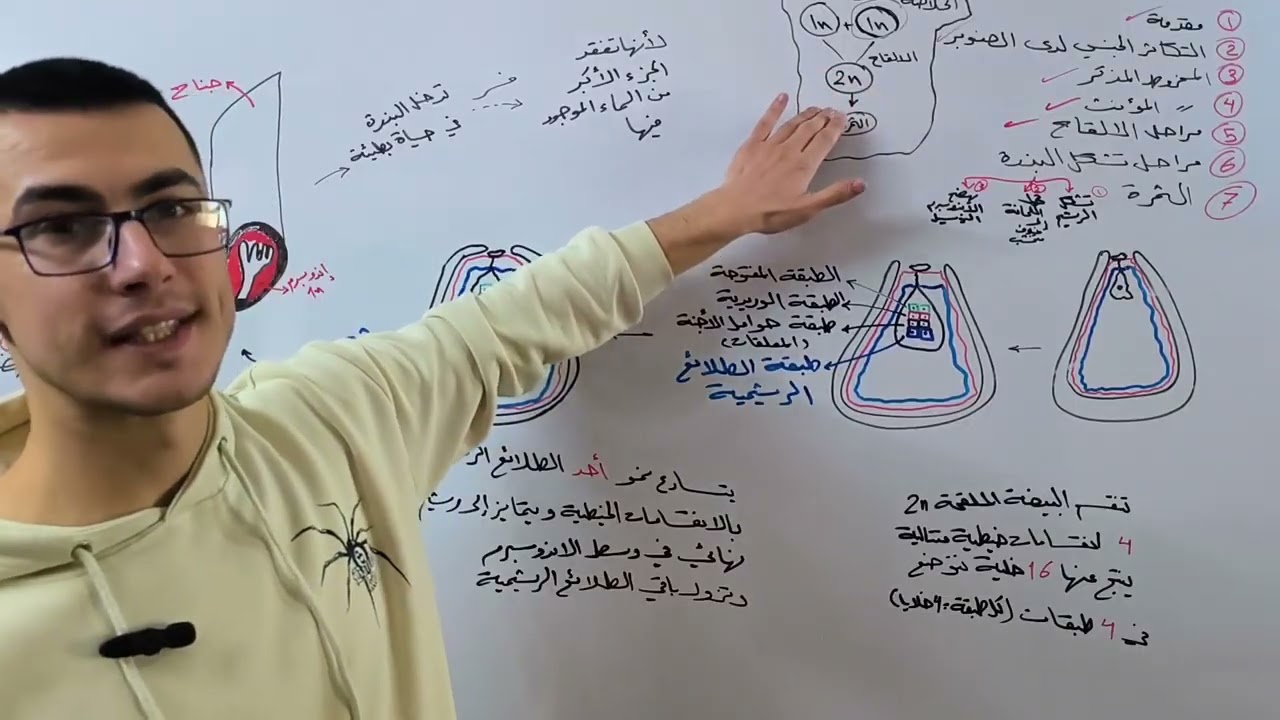 ① مقدمة
② التكاثر الجنسي لدى الصنوبر
③ المخروط المذكر
④ 〃 المؤنث
⑤ مراحل الالقاح
⑥ مراحل تشكل البذرة
① تشكل الرشيم
⑦ الثمرة
1n + 1n
الالقاح
2n
لأنها تفقد
الجزء الأكبر
من الماء الموجود
فيها
تدخل البذرة
في حياة بطيئة
جناح
اندوسبرم
1n
الطبقة المفتوحة
الطبقة الوريدية
طبقة حوامل الأجنة
(المعلقات)
طبقة الطلائع
الرشيمية
تنقسم البيضة الملقحة 2n
4 انقسامات خيطية متتالية
ينتج عنها 16 خلية تتوضع
في 4 طبقات (كل طبقة = 4 خلايا)
يتسارع نمو أحد الطلائع
بالانقسامات الخيطية ويتمايز إلى
نهائي في وسط الاندوسبرم
وتزول باقي الطلائع الرشيمية